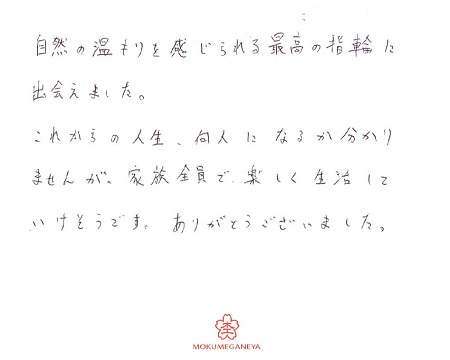 自然の温もりを感じられる最高の指輪に
出会えました。
これからの人生、何人になるか分かり
ませんが、家族全員で、楽しく生活して
いけそうです。ありがとうございました。
MOKUMEGANEYA